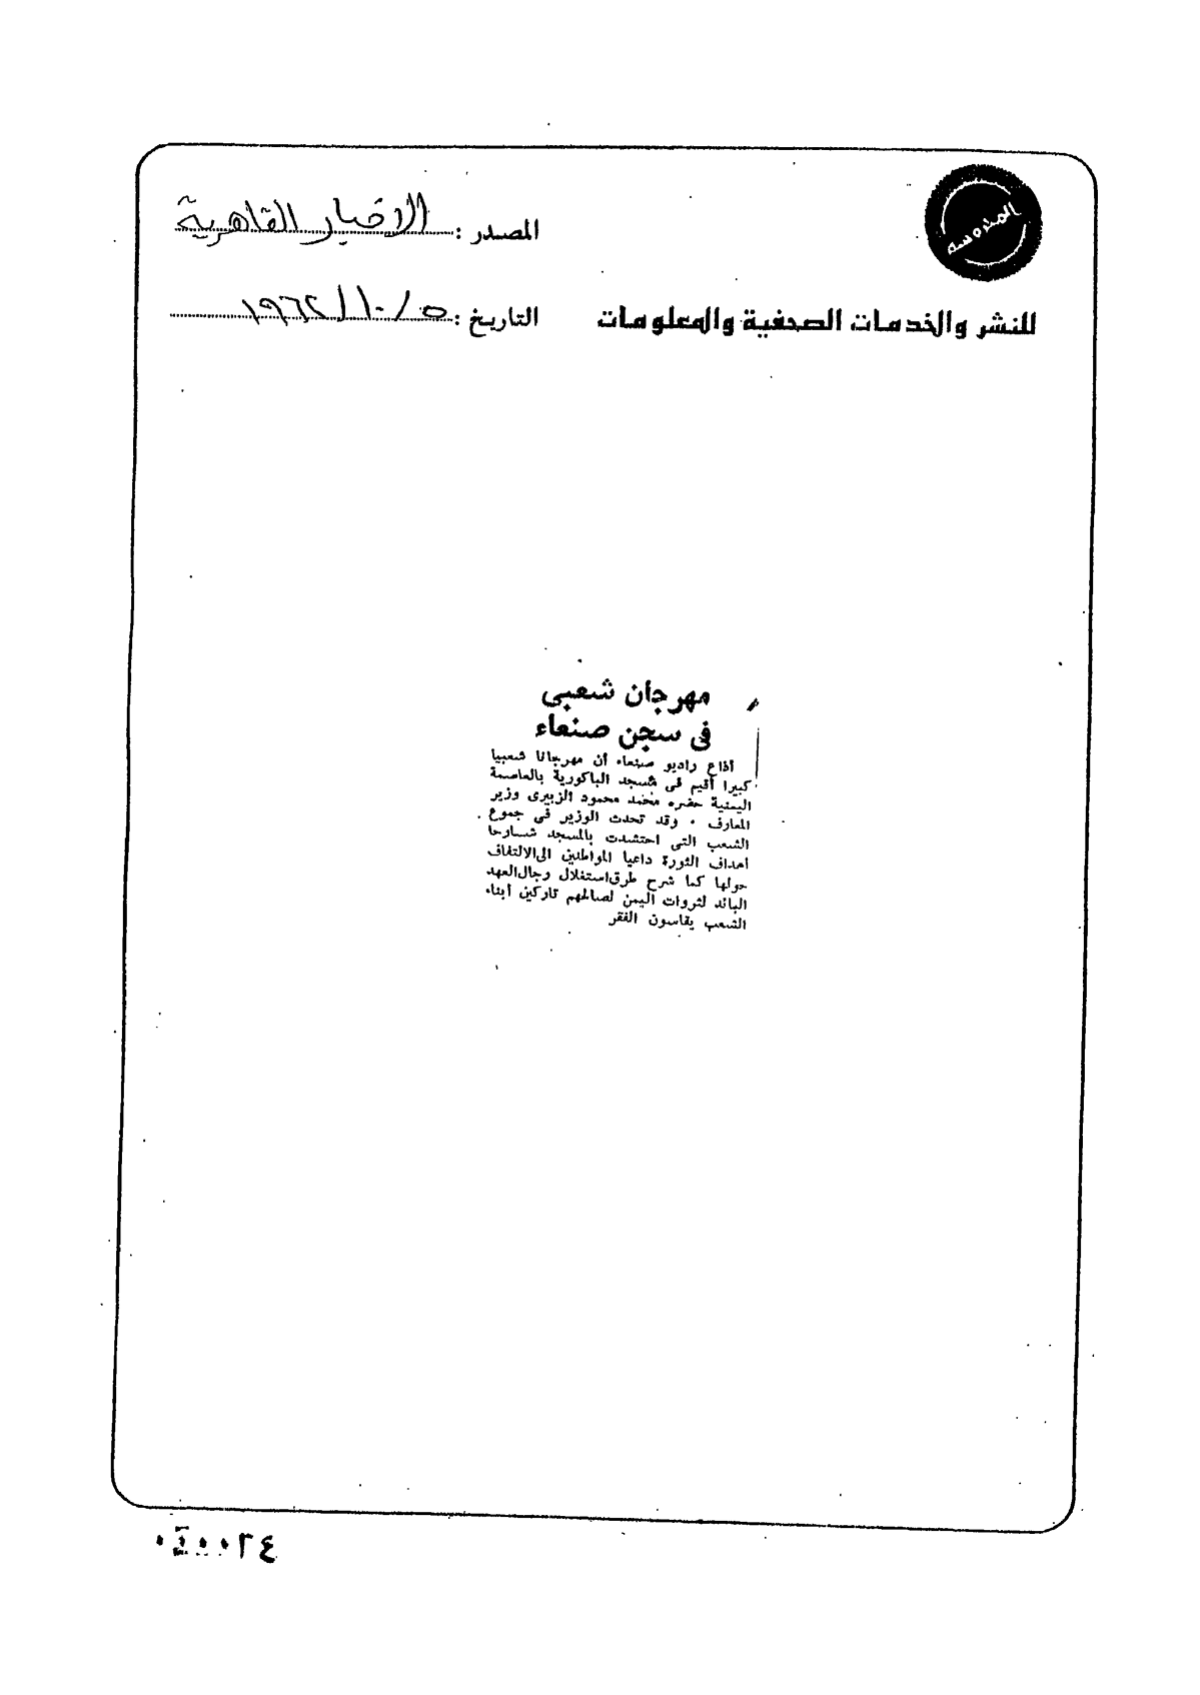 المحروسة
المصدر : الاخبار القاهرية
للنشر والخدمات الصحفية والمعلومات
التاريخ : ٥ / ١٠ / ١٩٦٢
مهرجان شعبى
فى سجن صنعاء
أذاع راديو صنعاء أن مهرجانا شعبيا
كبيرا أقيم فى مسجد الباكورية بالعاصمة
اليمنية حضره محمد محمود الزبيرى وزير
المعارف . وقد تحدث الوزير فى جموع
الشعب التى احتشدت بالمسجد شارحا
أهداف الثورة داعيا المواطنين الى الالتفاف
حولها كما شرح طرق استغلال رجال العهد
البائد لثروات اليمن لصالحهم تاركين أبناء
الشعب يقاسون الفقر